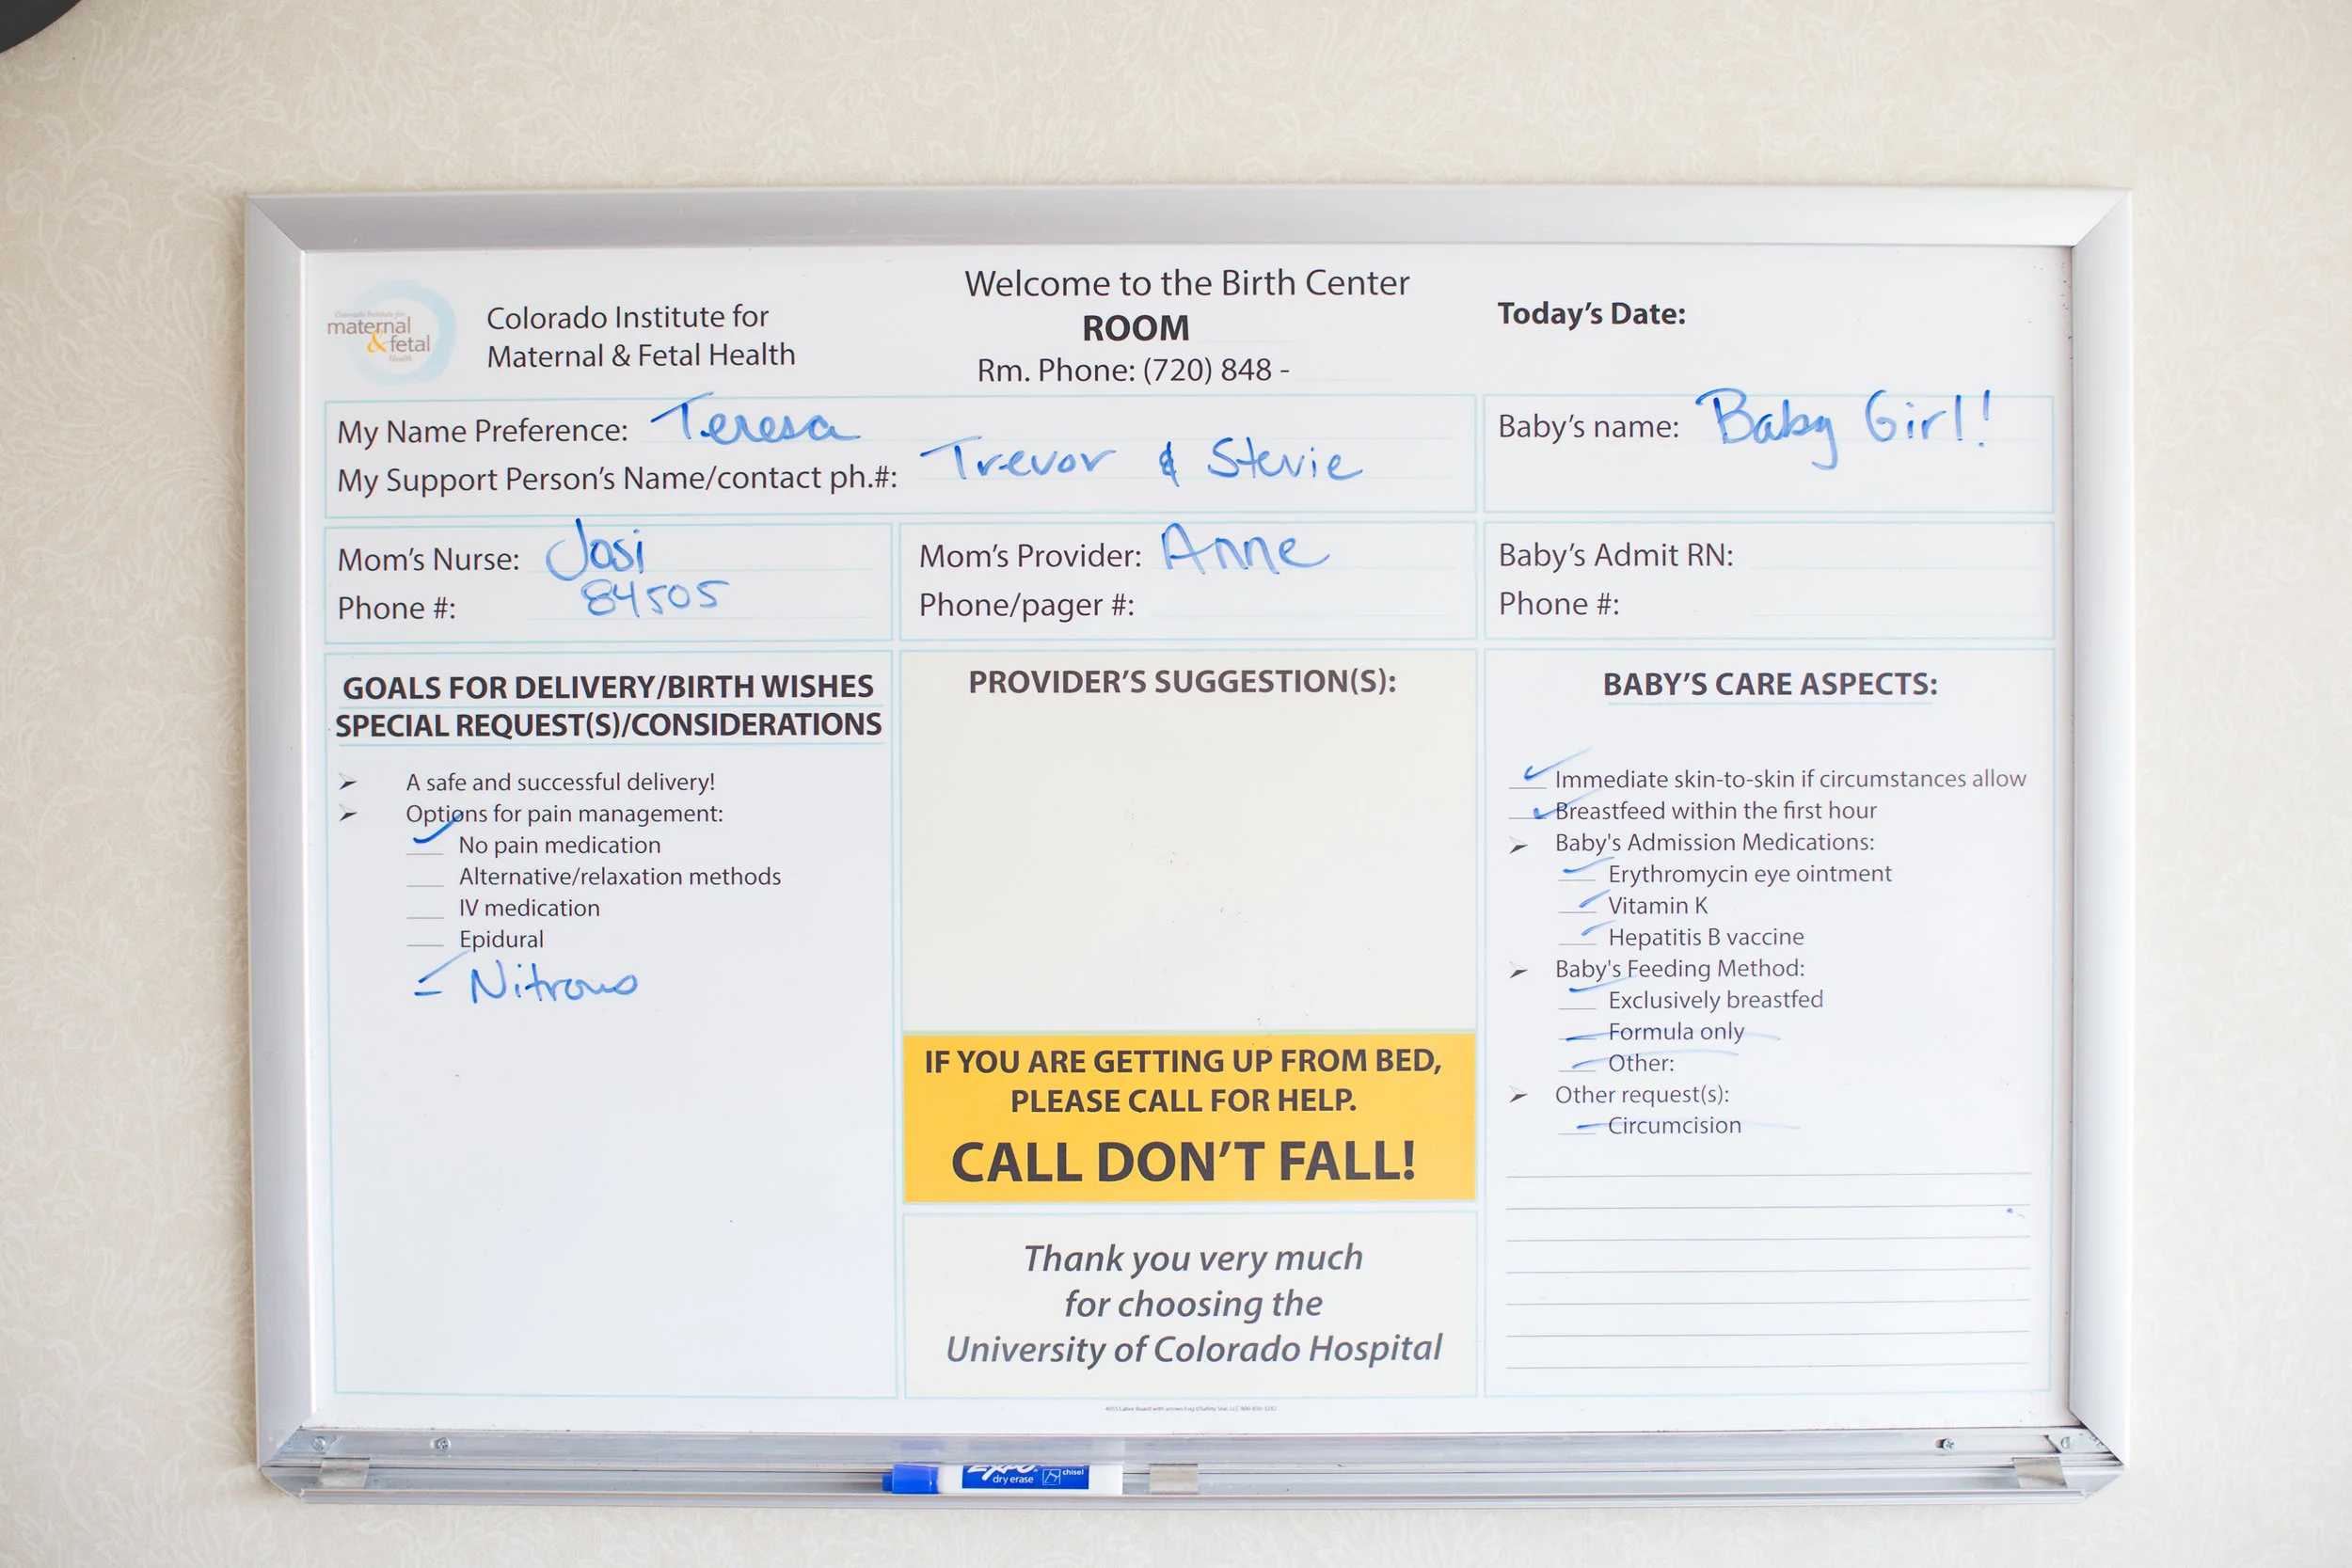 Colorado Institute for
maternal
&fetal
Health
Colorado Institute for
Maternal & Fetal Health
Welcome to the Birth Center
ROOM
Rm. Phone: (720) 848 -
Today's Date:
My Name Preference: Teresa
My Support Person's Name/contact ph.#: Trevor & Stevie
Baby's name: Baby Girl!
Mom's Nurse: Josi
Phone #: 84505
Mom's Provider: Anne
Phone/pager #:
Baby's Admit RN:
Phone #:
GOALS FOR DELIVERY/BIRTH WISHES
SPECIAL REQUEST(S)/CONSIDERATIONS
A safe and successful delivery!
Options for pain management:
No pain medication
Alternative/relaxation methods
IV medication
Epidural
Nitrous
PROVIDER'S SUGGESTION(S):
IF YOU ARE GETTING UP FROM BED,
PLEASE CALL FOR HELP.
CALL DON'T FALL!
Thank you very much
for choosing the
University of Colorado Hospital
BABY'S CARE ASPECTS:
Immediate skin-to-skin if circumstances allow
Breastfeed within the first hour
Baby's Admission Medications:
Erythromycin eye ointment
Vitamin K
Hepatitis B vaccine
Baby's Feeding Method:
Exclusively breastfed
Formula only
Other:
Other request(s):
Circumcision
EXPO
dry erase chisel